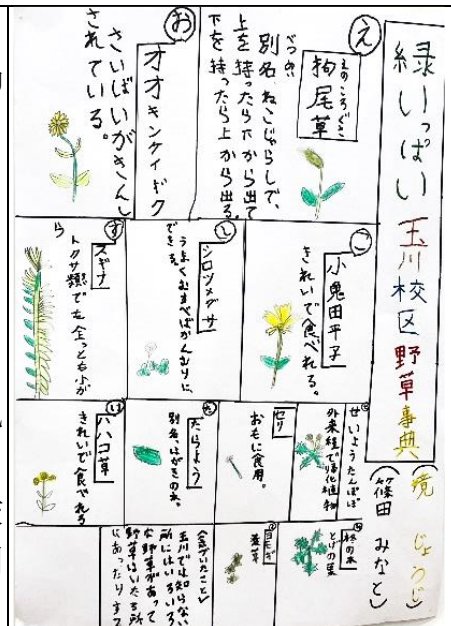 緑いっぱい玉川校区野草事典
(境 じょうじ)
(篠田 みなと)
え
えのころぐさ
狗尾草
べつめい
別名、ねこじゃらしで、
上を持ったら下から出て
下を持ったら上から出る。
お
オオキンケイギク
さいばいがきんし
されている。
こ
小鬼田平子
きれいで食べれる。
し
シロツメグサ
うまくむすべばかんむりに
できる。
す
スギナ
トクサ類で
せ
せいようたんぽぽ
外来種で帰化植物
セリ
おもに食用。
た
たらよう
別名、はがきの木。
は
ハハコ草
きれいで食べれる
柊の木
とげの葉
ヨモギ
薬草
玉川では知らない
所にはいろいろ
な野草があって
野草はいたる所
にあったりする